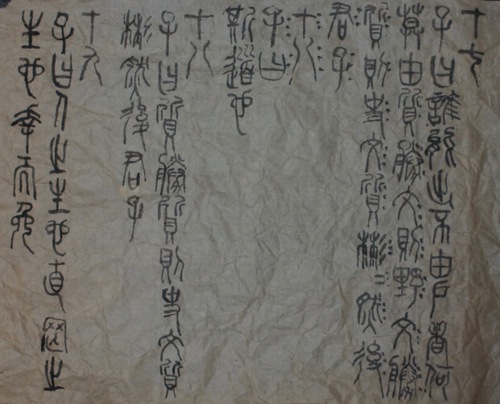 十七
子曰誰能出不由戶者何
莫由質勝文則野文勝
質則史文質彬=然後
君子
十八
子曰
斯道也
十八
子曰質勝質則史文質
彬然後君子
十九
子曰人之生也直罔之
生也幸而免